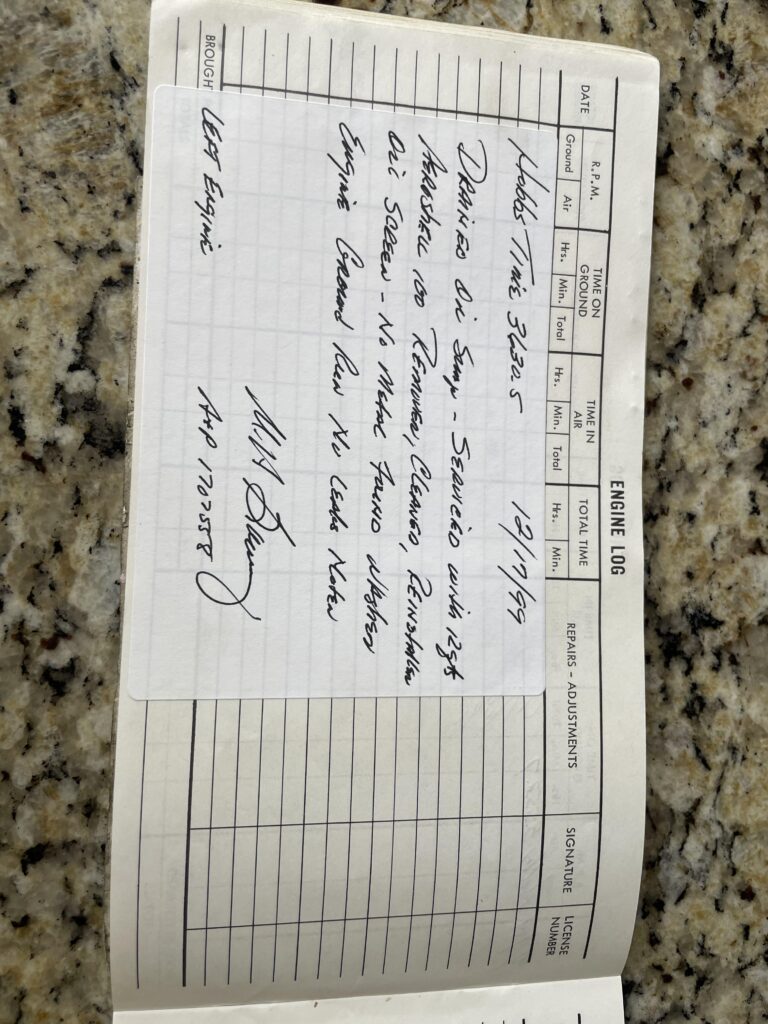 ENGINE LOG
DATE R.P.M. TIME ON GROUND TIME IN AIR TOTAL TIME REPAIRS – ADJUSTMENTS SIGNATURE LICENSE NUMBER
Ground Air Hrs. Min. Total Hrs. Min. Total Hrs. Min.
Hobbs Time 3630.5 12/17/99
DRAINED OIL Sump - SERVICED with 12 qts
AEROSHELL 100 REMOVED, CLEANED, REINSTALLED
OIL SCREEN - NO METAL FOUND WASHED
ENGINE GROUND RUN NO LEAKS NOTED
A&P 1707558
LEFT ENGINE
BROUGH